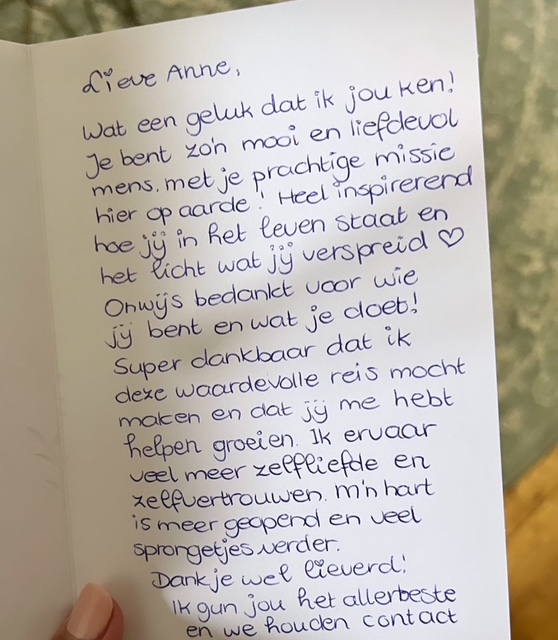 Lieve Anne,
Wat een geluk dat ik jou ken!
Je bent zo'n mooi en liefdevol
mens, met je prachtige missie
hier op aarde! Heel inspirerend
hoe jij in het leven staat en
het licht wat jij verspreid ♡
Onwijs bedankt voor wie
jij bent en wat je doet!
Super dankbaar dat ik
deze waardevolle reis mocht
maken en dat jij me hebt
helpen groeien. Ik ervaar
veel meer zelfliefde en
zelfvertrouwen. M'n hart
is meer geopend en veel
sprongetjes verder.
Dank je wel lieverd!
Ik gun jou het allerbeste
en we houden contact